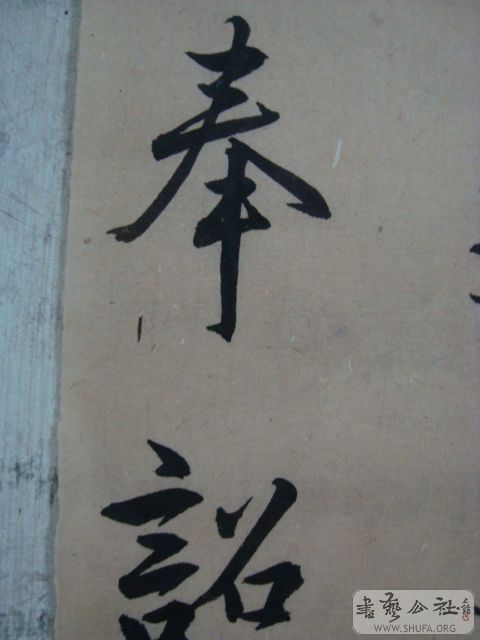 奉
詔
書藝公社
WWW.SHUFA.ORG